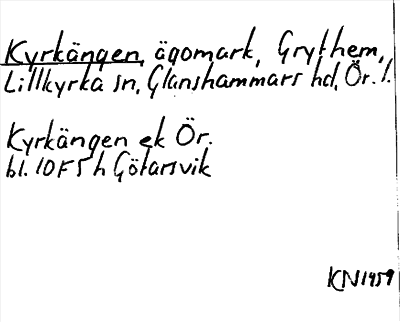 Kyrkängen, ägomark, Grythem,
Lillkyrka sn, Glanshammars hd, Ör. l.
Kyrkängen ek Ör.
bl. 10F5h Götarsvik
KN 1959